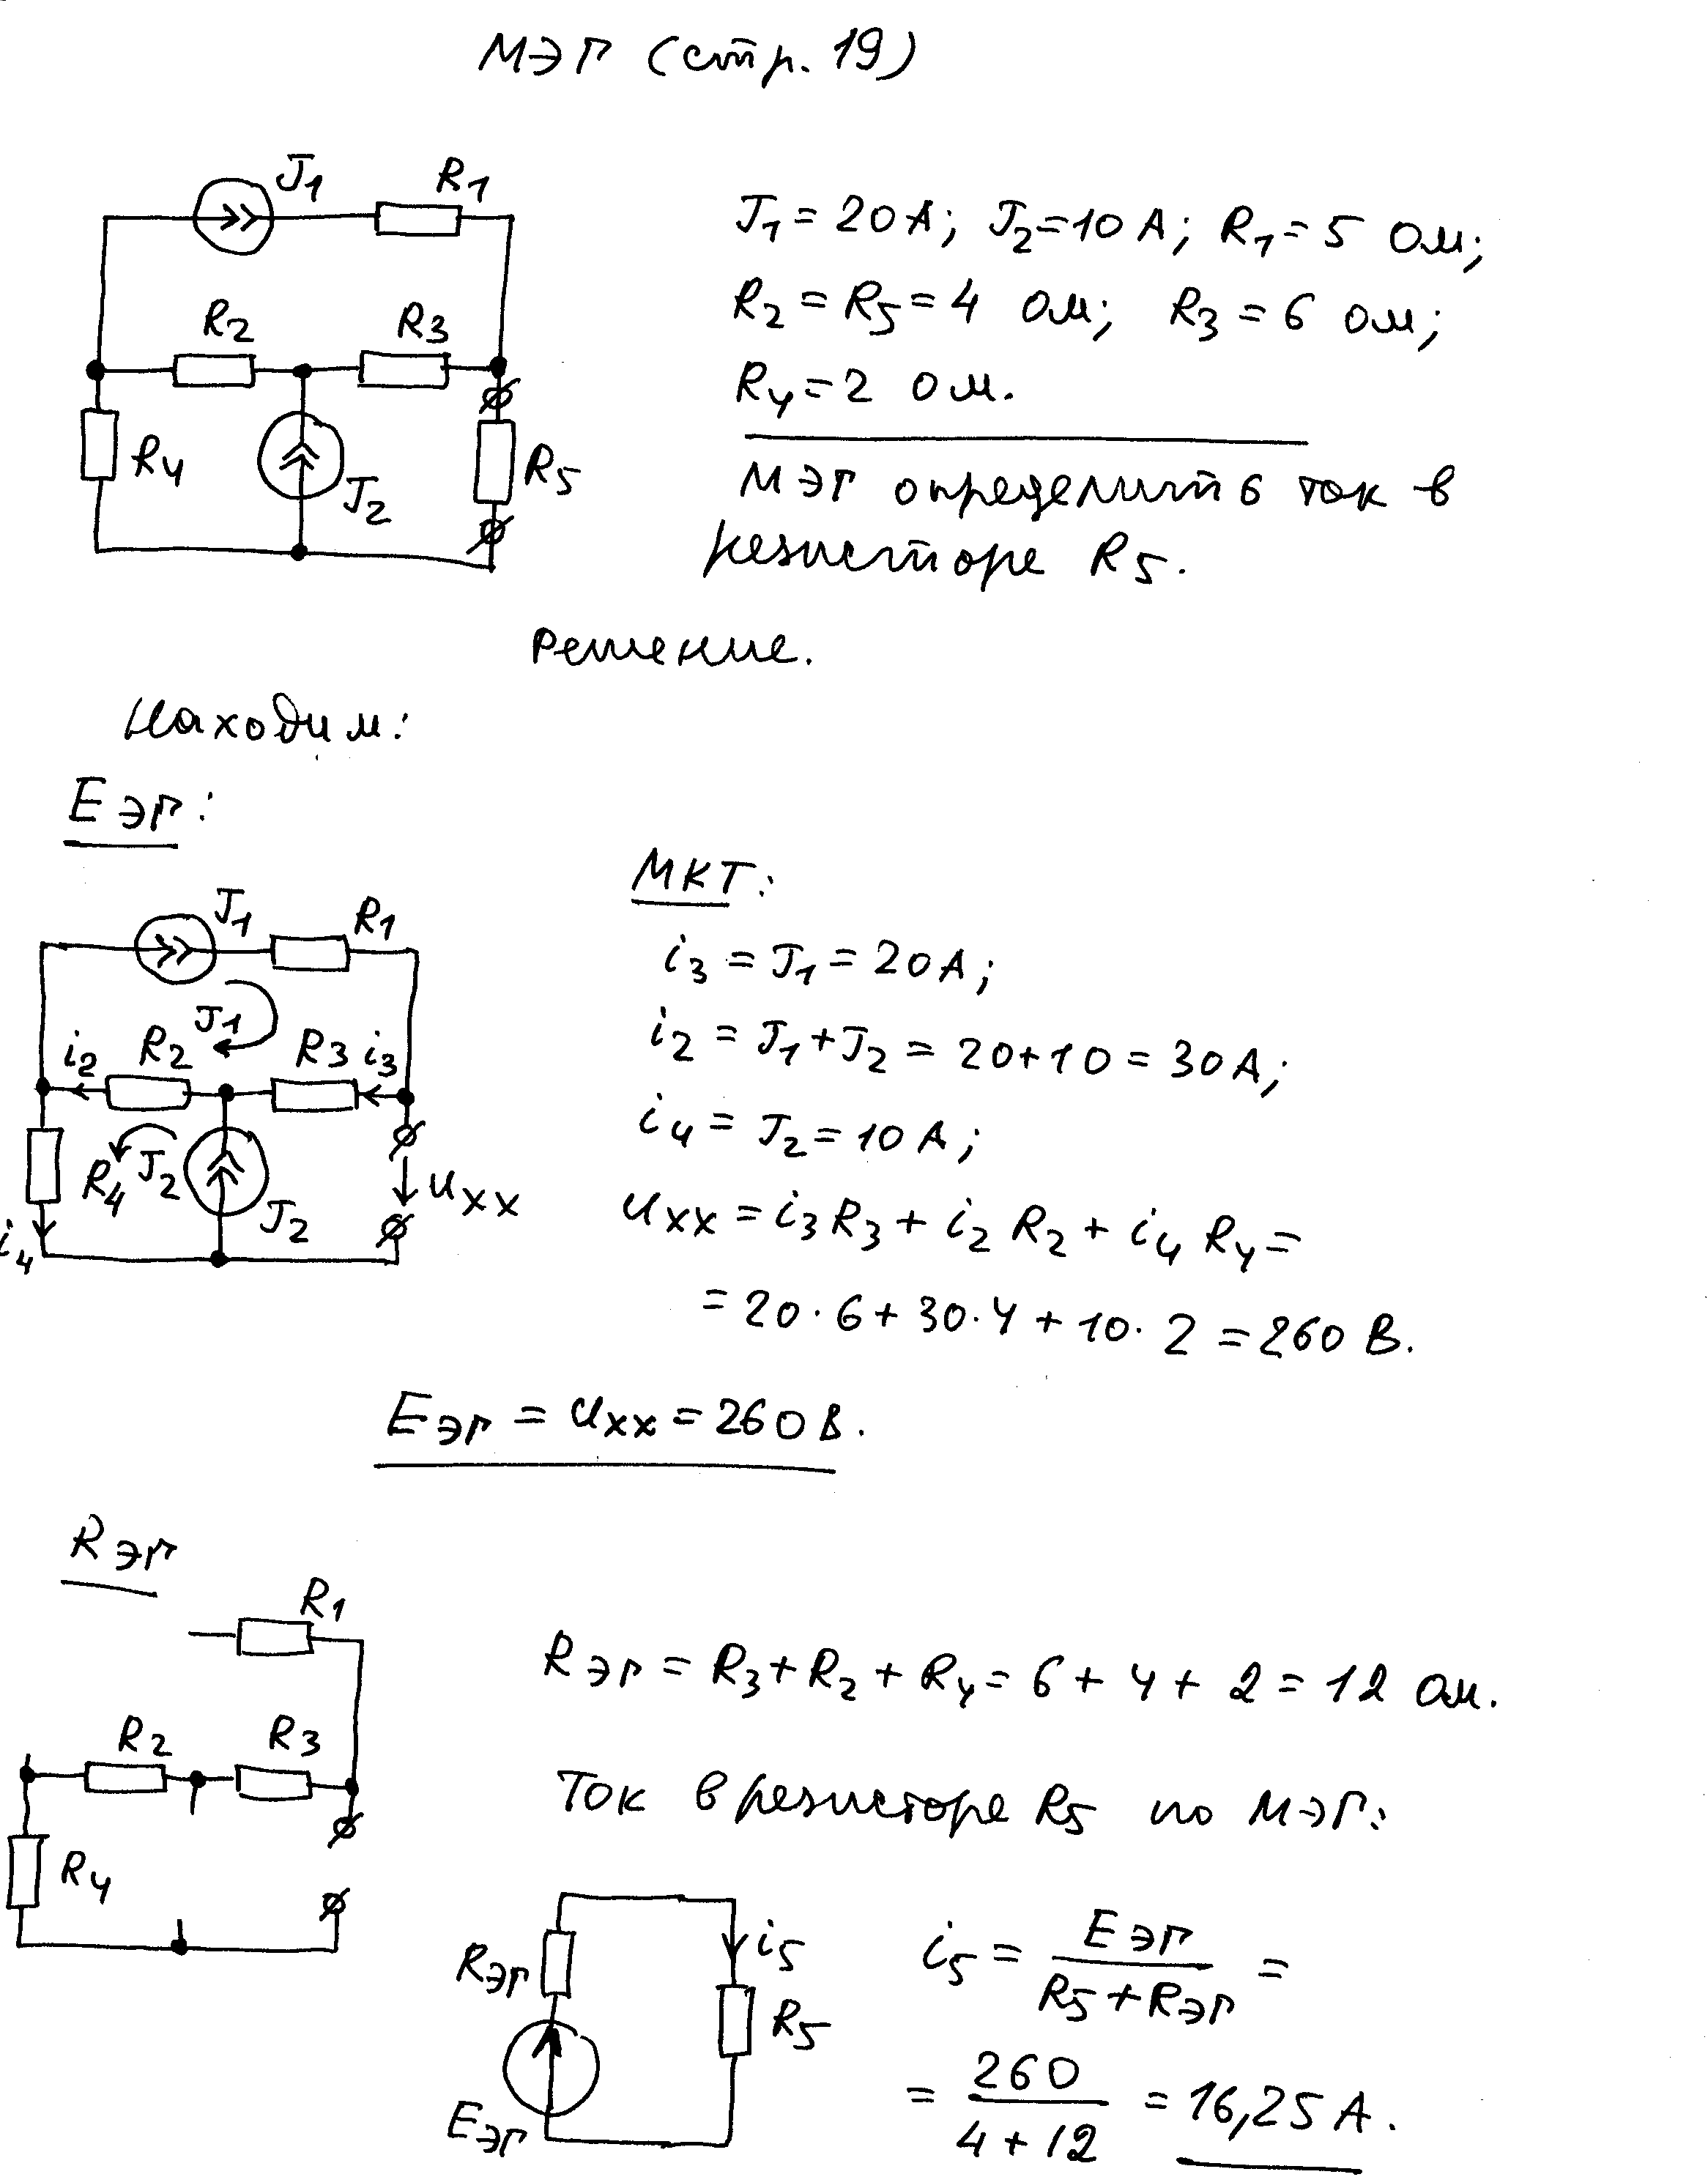 МЭГ (стр. 19)
J1
R1
R2
R3
R4
J2
R5
J1 = 20 А; J2 = 10 А; R1 = 5 Ом;
R2 = R5 = 4 Ом; R3 = 6 Ом;
R4 = 2 Ом.
МЭГ определить ток в
резисторе R5.
Решение.
Находим:
Eэг:
J1
R1
J1
i2
R2
R3
i3
R4
J2
J2
i4
uхх
МКТ:
i3 = J1 = 20 А;
i2 = J1 + J2 = 20 + 10 = 30 А;
i4 = J2 = 10 А;
uхх = i3 R3 + i2 R2 + i4 R4 =
= 20 · 6 + 30 · 4 + 10 · 2 = 260 В.
Eэг = uхх = 260 В.
Rэг
R1
R2
R3
R4
Rэг = R3 + R2 + R4 = 6 + 4 + 2 = 12 Ом.
Ток в резисторе R5 по МЭГ:
Rэг
Eэг
i5
R5
i5 = Eэг / (R5 + Rэг) =
= 260 / (4 + 12) = 16,25 А.